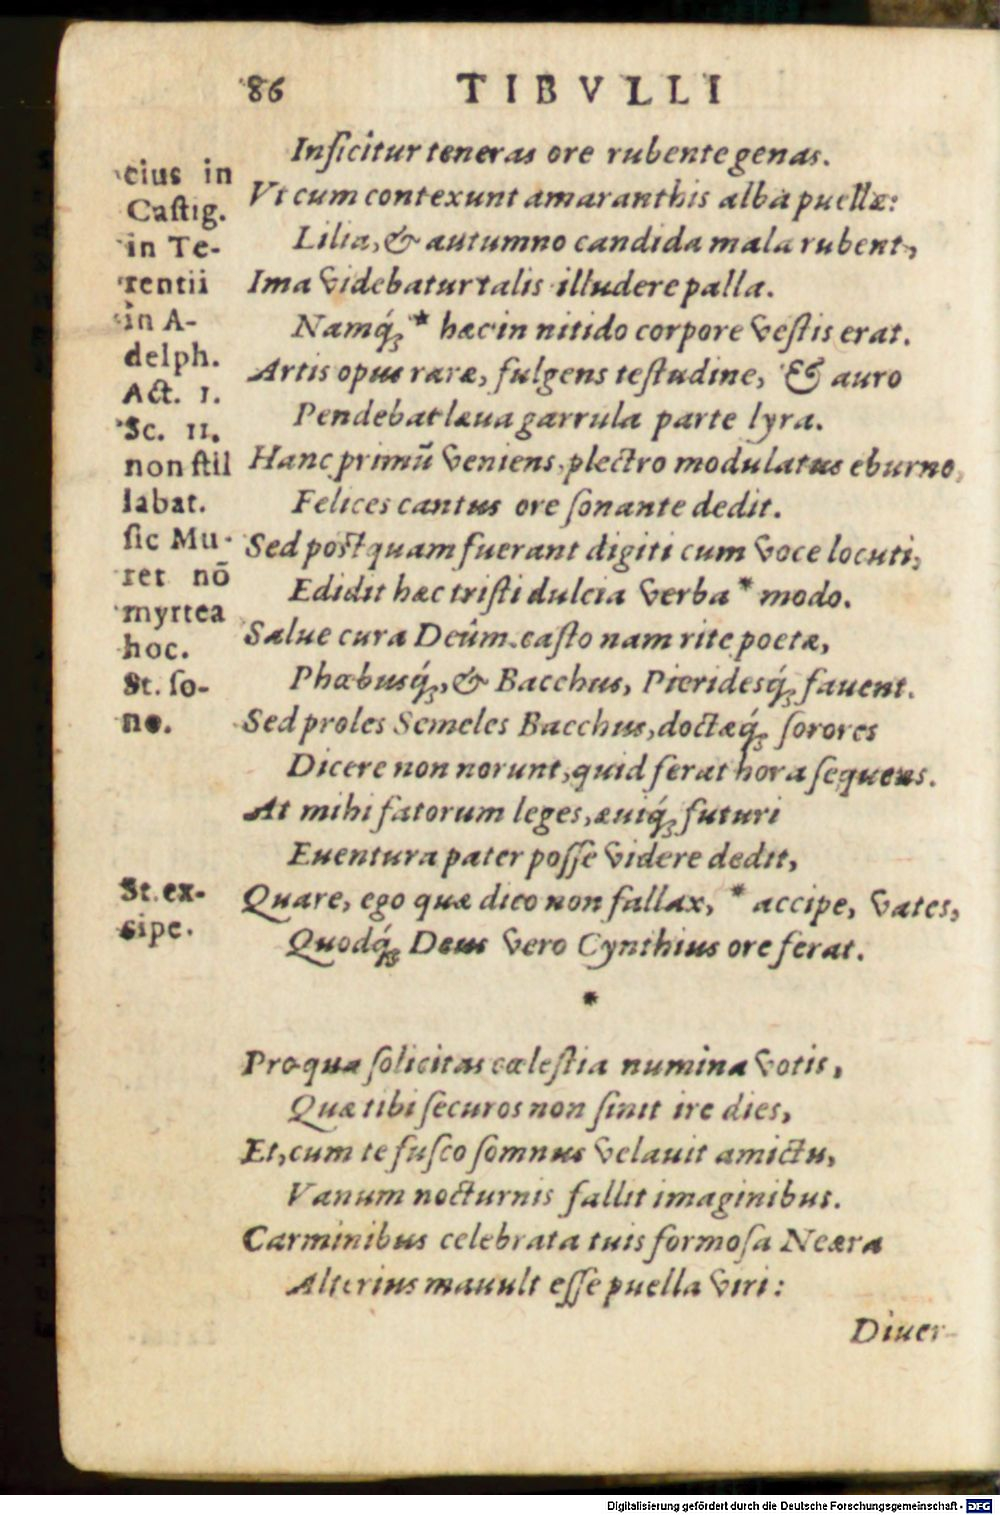 86 TIBVLLI
Inficitur teneras ore rubente genas.
Vt cum contexunt amaranthis alba puellæ:
Lilia, & autumno candida mala rubent,
Ima videbatur talis illudere palla.
Namq́; * hæc in nitido corpore vestis erat.
Artis opus raræ, fulgens testudine, & auro
Pendebat læua garrula parte lyra.
Hanc primū veniens, plectro modulatus eburno,
Felices cantus ore sonante dedit.
Sed postquam fuerant digiti cum voce locuti,
Edidit hæc tristi dulcia verba * modo.
Salue cura Deûm. casto nam rite poetæ,
Phœbusq́;, & Bacchus, Pieridesq́; fauent.
Sed proles Semeles Bacchus, doctæq́; sorores
Dicere non norunt, quid ferat hora sequens.
At mihi fatorum leges, æuiq́; futuri
Euentura pater posse videre dedit,
Quare, ego quæ dico non fallax, * accipe, vates,
Quodq́; Deus vero Cynthius ore ferat.
*
Pro qua solicitas cœlestia numina votis,
Quæ tibi securos non sinit ire dies,
Et, cum te fusco somnus velauit amictu,
Vanum nocturnis fallit imaginibus.
Carminibus celebrata tuis formosa Neæra
Alterius mauult esse puella viri:
Diuer-
cius in
Castig.
in Te-
rentii
in A-
delph.
Act. 1.
Sc. 11.
non stil
labat.
sic Mu-
ret nō
myrtea
hoc.
St. so-
no.
St. ex-
cipe.
Digitalisierung gefördert durch die Deutsche Forschungsgemeinschaft - DFG